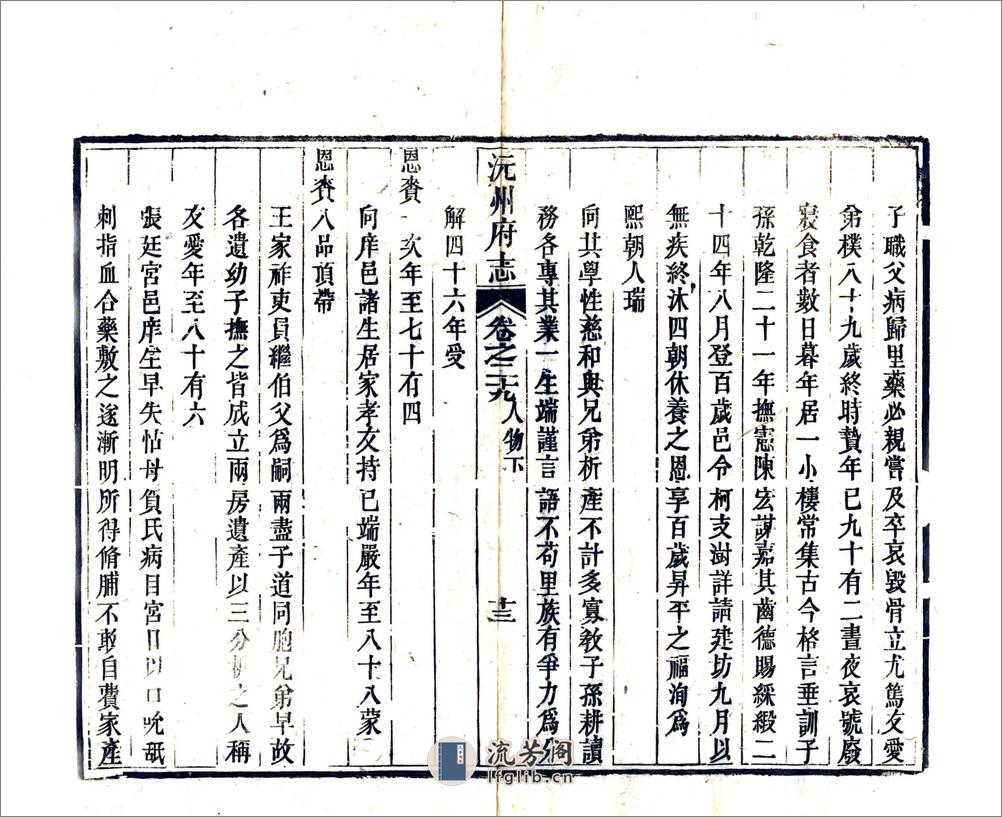 子職父病歸里藥必親嘗及卒哀毀骨立尤篤友愛
弟樸八十九歲終時贄年已九十有二晝夜哀號廢
寢食者數日暮年居一小樓常集古今格言垂訓子
孫乾隆二十一年撫憲陳宏謀嘉其齒德賜綵緞二
十四年八月登百歲邑令柯支澍詳請建坊九月以
無疾終沐四朝休養之恩享百歲昇平之福洵爲
熙朝人瑞
向其學性慈和與兄弟析產不計多寡教子孫耕讀
務各專其業一生端謹言語不苟里族有爭力爲
沅州府志
卷之二十九
人物下
十三
解四十六年受
恩賚一次年至七十有四
向庠邑諸生居家孝友持已端嚴年至八十八蒙
恩賚八品頂帶
王家祚吏員繼伯父爲嗣兩盡子道同胞兄弟早故
各遺幼子撫之皆成立兩房遺產以三分析之人稱
友愛年至八十有六
張廷宮邑庠生早失怙母負氏病目宮日以口吮舐
刺指血合藥敷之遂漸明所得脩脯不敢自費家產
流芳阁
lfglib.cn